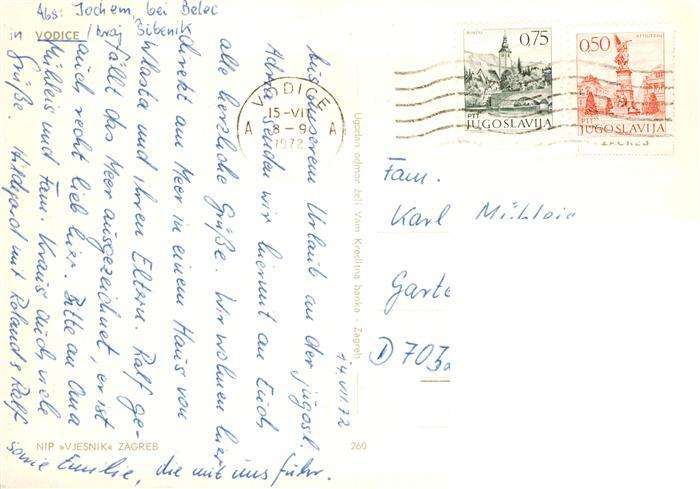 Abs: Jochem, bei Belec
VODICE / kraj Šibenik
14.VII.72
Aus unserem Urlaub an der jugosl.
Adria senden wir hiermit an Euch
alle herzliche Grüße. Wir wohnen hier
direkt am Meer in einem Haus von
Vlasta und ihren Eltern. Ralf ge-
fällt das Meer ausgezeichnet, er ist
auch recht lieb hier. Bitte an Oma
Mühleis und Fam. Kraus auch viele
Grüße. Hildgard mit Roland & Ralf
sowie Emilie, die mit uns fuhr.
NIP »VJESNIK« ZAGREB
260
Ugodan odmor želi Vam Kreditna banka - Zagreb
VODICE
15-VII
8-9
1972
A A
0,75
PTT
JUGOSLAVIJA
0,50
PTT
JUGOSLAVIJA
ZAGREB
Fam.
Karl Mühleis
Garte
D 703